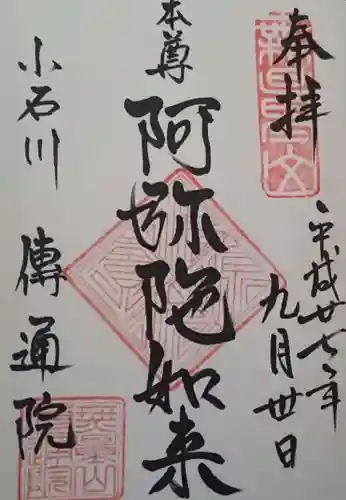 奉拝
平成廿七年
九月廿日
本尊
阿弥陀如来
小石川
傳通院